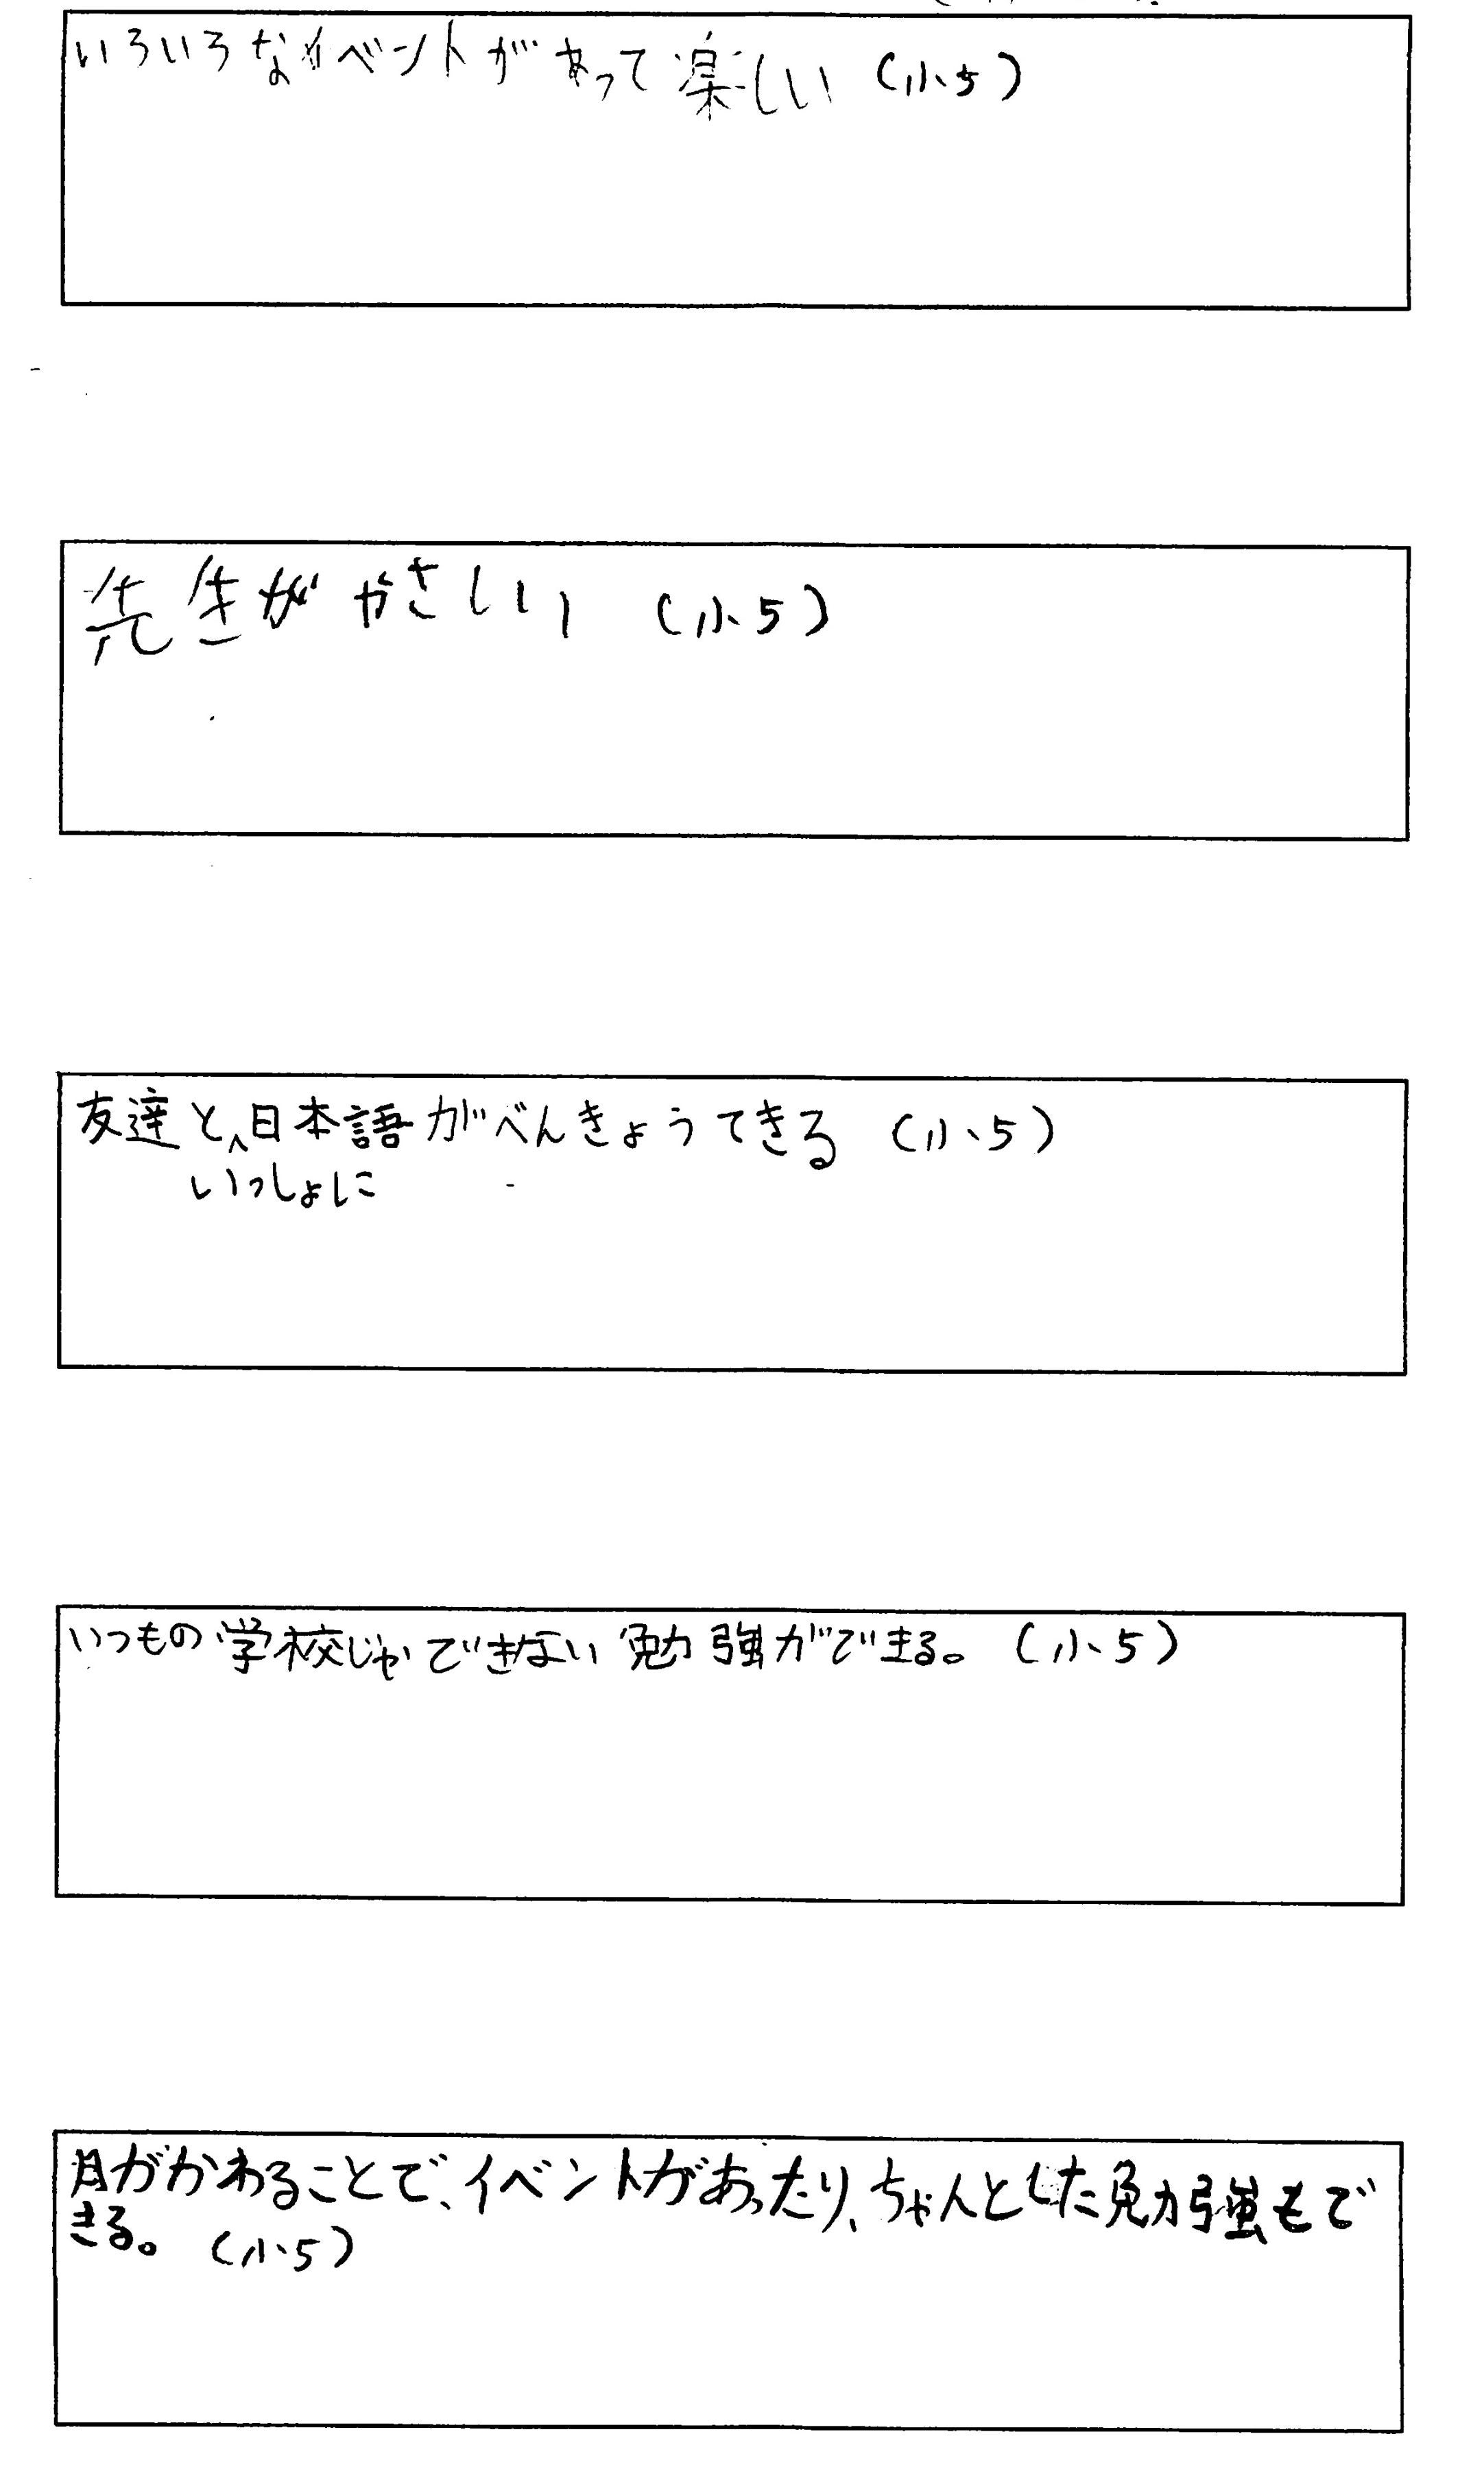 いろいろなイベントがあって楽しい (小5)
先生がやさしい (小5)
友達と、日本語がべんきょうできる (小5)
いっしょに
いつもの学校じゃできない勉強ができる。 (小5)
月がかわることで、イベントがあったり、ちゃんとした勉強もで
きる。 (小5)